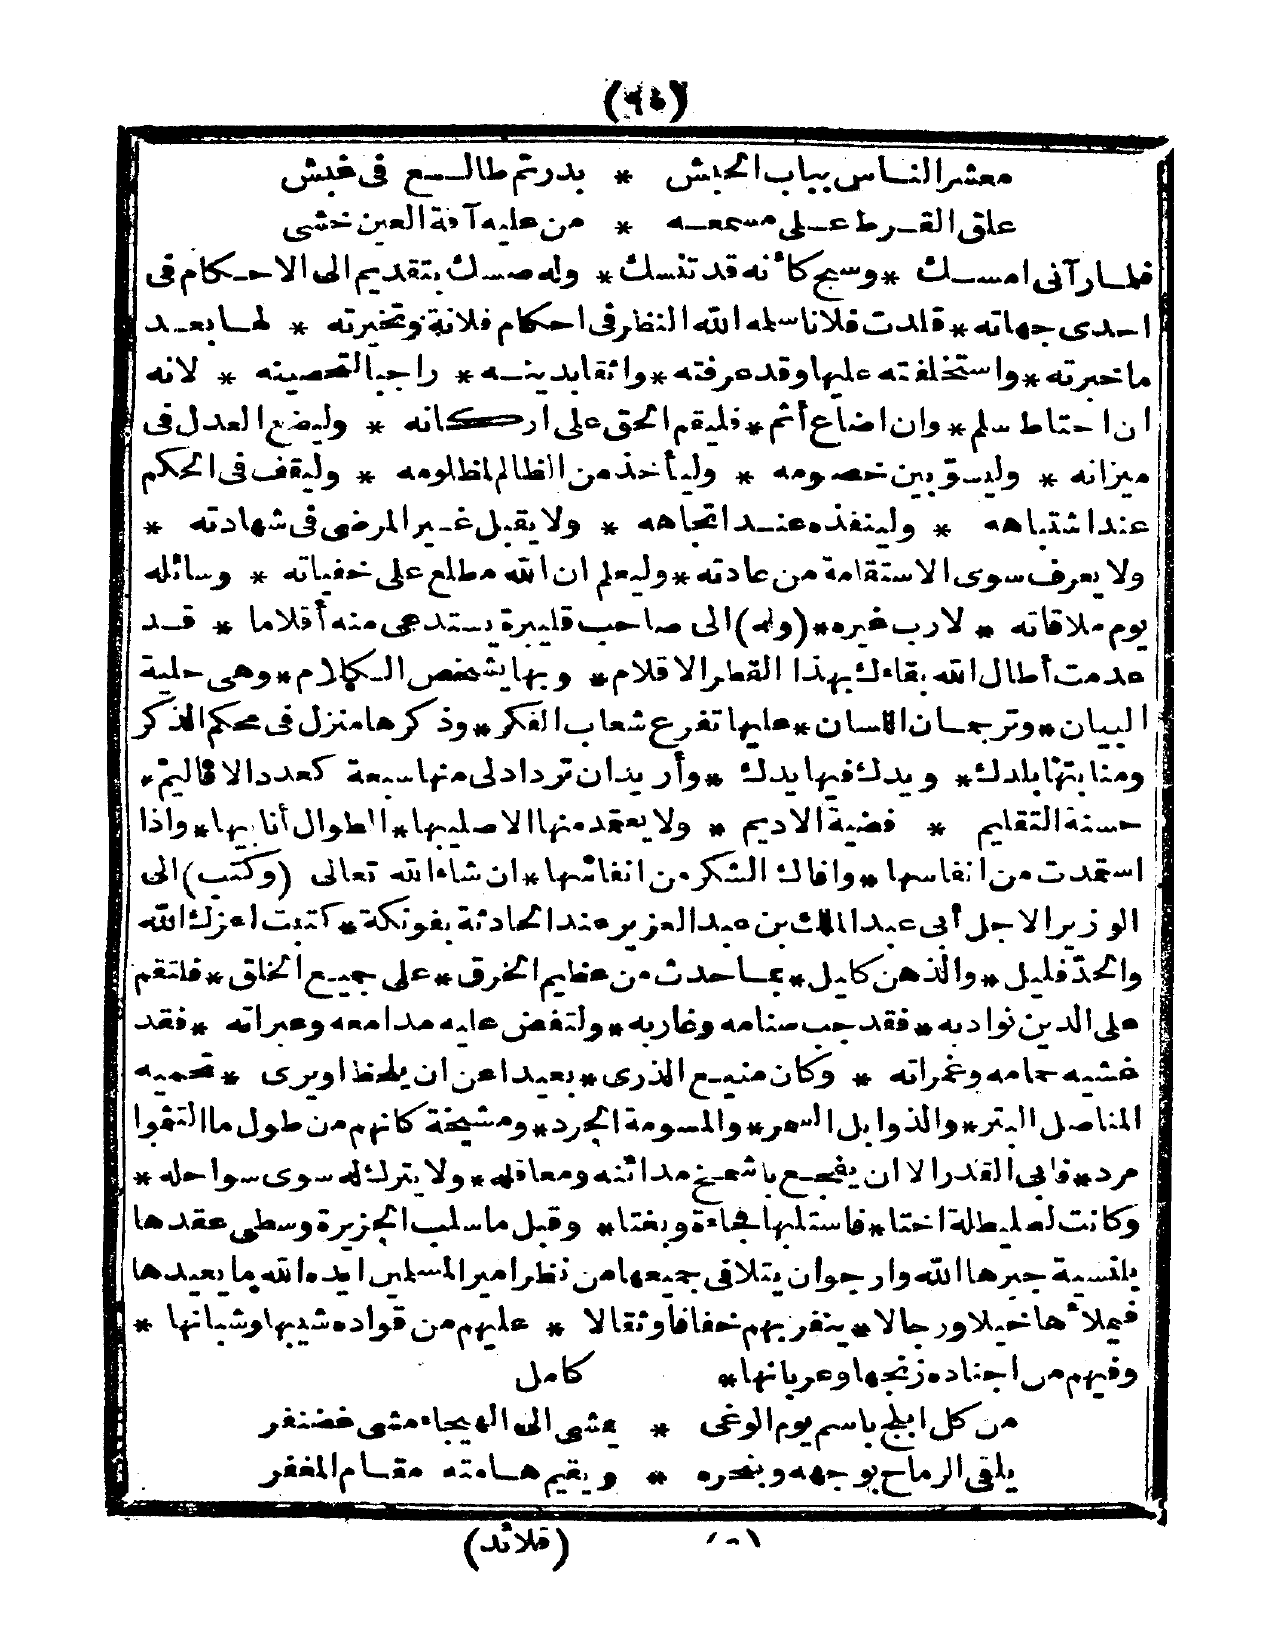 معشر الناس بباب الحبش * بدر تم طالع فى غبش
علق القرط على مسمعه * من عليه آفة العين خشى
فلما رآنى امسك * وسبح كأنه قد تنسك * وله صك بتقديم الى الاحكام فى
احدى جهاته * قلدت فلانا سلمه الله النظر فى احكام فلانة وتخيرته * لها بعد
ما خبرته * واستخلفته عليها وقد عرفته * واثقا بدينه * راجيا لتحصينه * لانه
ان احتاط سلم * وان اضاع أثم * فليقم الحق على اركانه * وليضع العدل فى
ميزانه * وليسوّ بين خصومه * وليأخذ من الظالم لمظلومه * وليقف فى الحكم
عند اشتباهه * ولينفذه عند اتجاهه * ولا يقبل غير المرضى فى شهادته *
ولا يعرف سوى الاستقامة من عادته * وليعلم ان الله مطلع على خفياته * وسائله
يوم ملاقاته * لا رب غيره * (وله) الى صاحب قلبيرة يستدعى منه أقلاما * قد
عدمت أطال الله بقاءك بهذا القطر الاقلام * وبها يشخص الكلام * وهى حلية
البيان * وترجمان اللسان * عليها تفرع شعاب الفكر * وذكرها منزل فى محكم الذكر
ومنابتها بلدك * ويدك فيها يدك * وأريد ان ترداد لى منها سبعة كعدد الاقاليم *
حسنة التقليم * فضية الاديم * ولا يعقد منها الا صليبها * الطوال أنابيبها * واذا
استمدت من انفاسها * وافاك الشكر من انفاثها * ان شاء الله تعالى (وكتب) الى
الوزير الاجل أبى عبد الملك بن عبد العزيز عند الحادثة بفونكة * كتبت اعزك الله
والحدّ فليل * والذهن كليل * بما حدث من عظيم الخرق * على جميع الخلق * فلتقم
على الدين نوادبه * فقد جب سنامه وغاربه * ولتفض عليه مدامعه وعبراته * فقد
غشيه حمامه وغمراته * وكان منيع الذرى * بعيدا عن ان يلحظ او يرى * تحميه
المناصل البتر * والذوابل السمر * والمسومة الجرد * ومشيخة كانهم من طول ما التثموا
مرد * فابى القدر الا ان يفجع باشمخ مدائنه ومعاقله * ولا يترك له سوى سواحله *
وكانت لطليطلة اختا * فاستلبها فجاءة وبغتا * وقبل ما سلب الجزيرة وسطى عقدها
بلنسية جبرها الله وارجو ان يتلافى جميعها من نظر امير المسلمين ايده الله ما يعيدها
فيملأها خيلا ورجالا * ينفر بهم خفافا وثقالا * عليهم من قواده شيبها وشبانها *
وفيهم من اجناده زنجها وعربانها * كامل
من كل ابلج باسم يوم الوغى * يمشى الى الهيجاء مشى غضنفر
يلقى الرماح بوجهه وبنحره * ويقيم هامته مقام المغفر
(قلائد)